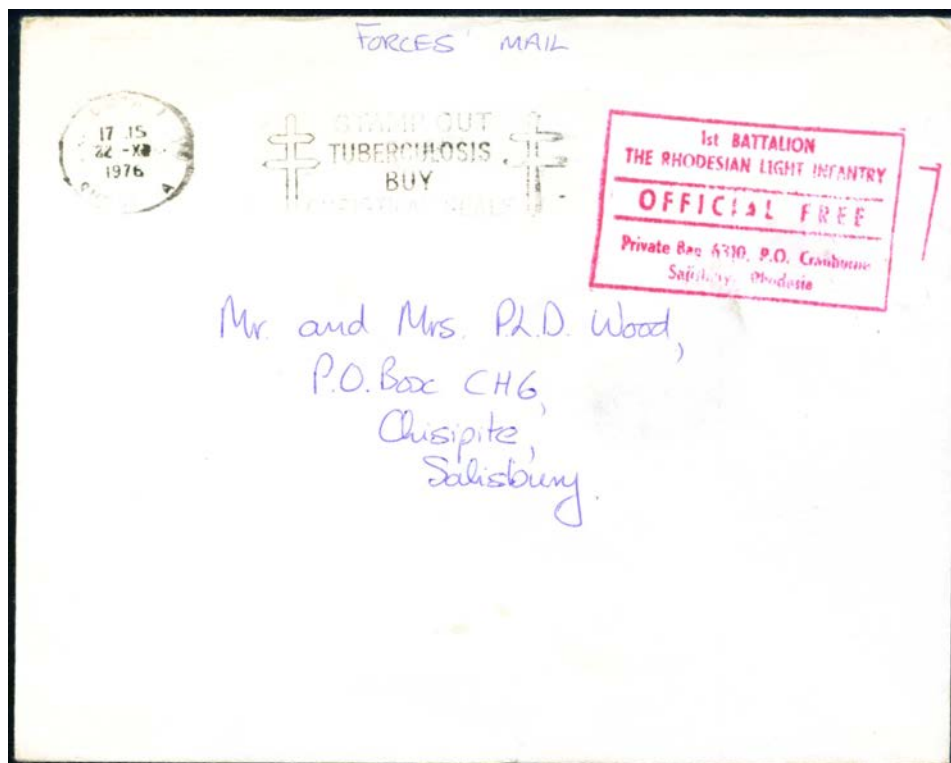 FORCES' MAIL
17 15
22 -X
1976
STAMP OUT
TUBERCULOSIS
BUY
CHRISTMAS SEALS
1st BATTALION
THE RHODESIAN LIGHT INFANTRY
OFFICIAL FREE
Private Bag 6310, P.O. Cranborne
Salisbury, Rhodesia
Mr. and Mrs. P.L.D. Wood,
P.O. Box CH6,
Chisipite,
Salisbury.